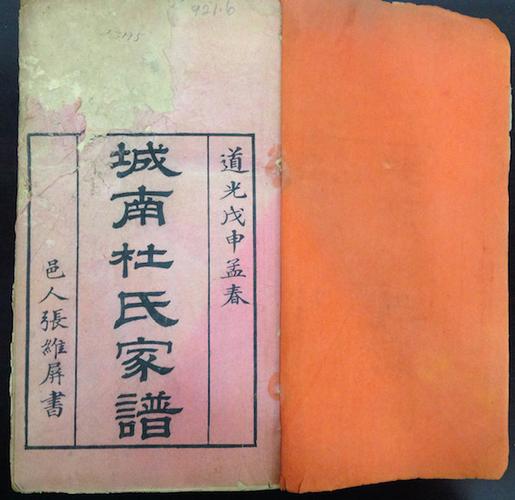 道光戊申孟春
城南杜氏家譜
邑人張維屏書
921.6